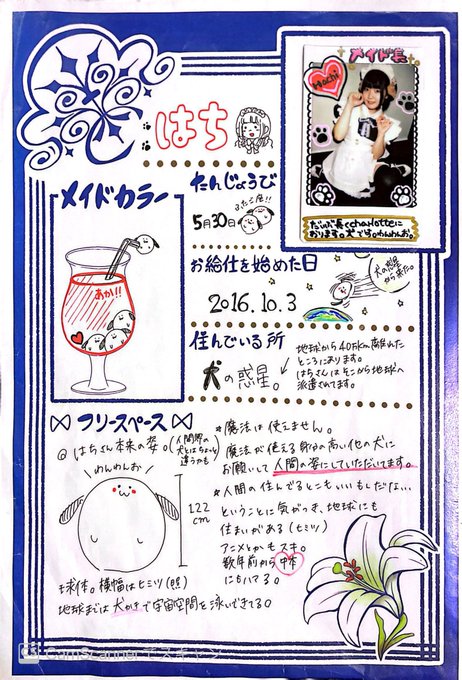 メイド長
Hachi
だいぶ長くcharlotteに
おります。犬です。わんわんお。
はち
メイドカラー
あか!!
たんじょうび
5月30日
ふたご座!!
お給仕を始めた日
2016.10.3
犬の惑星
から来た。
住んでいる所
犬の惑星。
地球から40万km離れた
ところにあります。
はちさんはそこから地球へ
派遣されてます。
フリースペース
@はちさん本来の姿。
人間界の
犬とはちょっと
違うかも
わんわんお
122
cm
球体。横幅はヒミツ(照)
地球までは犬かきで宇宙空間を泳いできてる。
*魔法は使えません。
魔法が使える身分の高い他の犬に
お願いして人間の姿にしていただいてます。
*人間の住んでるとこもいいもんだな…
ということに気がつき、地球にも
住まいがある(ヒミツ)
アニメとかもスキ。
数年前から
にもハマる。
CamScannerでスキャン